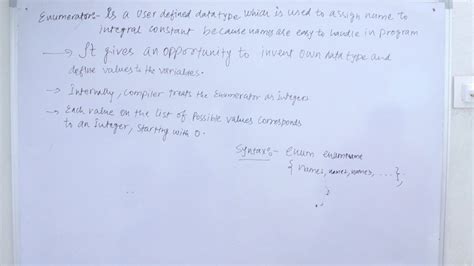 Enumerator:- Is a User defined datatype which is used to assign name to
integral constant because names are easy to handle in program
→ It gives an opportunity to invent own data type and
define values to the variables.
→ Internally, Compiler treats the Enumerator as Integers
→ Each value on the list of Possible values corresponds
to an Integer, Starting with 0.
Syntax:- enum enumname
{ name1, name2, name3, ....};